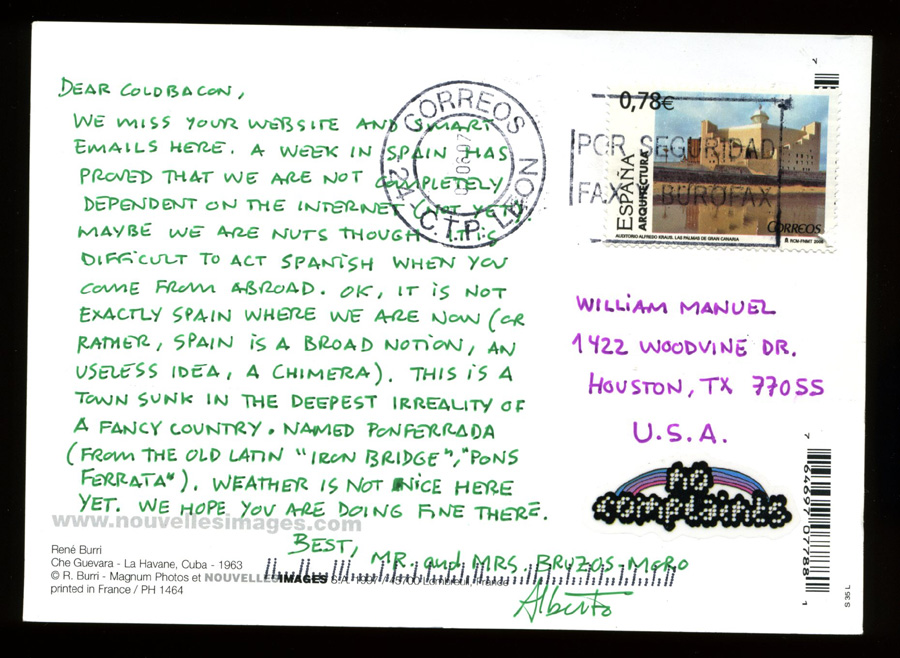 DEAR COLDBACON,
WE MISS YOUR WEBSITE AND SMART
EMAILS HERE. A WEEK IN SPAIN HAS
PROVED THAT WE ARE NOT COMPLETELY
DEPENDENT ON THE INTERNET (NOT YET)
MAYBE WE ARE NUTS THOUGH. IT IS
DIFFICULT TO ACT SPANISH WHEN YOU
COME FROM ABROAD. OK, IT IS NOT
EXACTLY SPAIN WHERE WE ARE NOW (OR
RATHER, SPAIN IS A BROAD NOTION, AN
USELESS IDEA, A CHIMERA). THIS IS A
TOWN SUNK IN THE DEEPEST IRREALITY OF
A FANCY COUNTRY. NAMED PONFERRADA
(FROM THE OLD LATIN "IRON BRIDGE", "PONS
FERRATA"). WEATHER IS NOT NICE HERE
YET. WE HOPE YOU ARE DOING FINE THERE.
BEST, MR. and MRS. BRUZOS-MORO
Alberto
www.nouvellesimages.com
René Burri
Che Guevara - La Havane, Cuba - 1963
© R. Burri - Magnum Photos et NOUVELLES IMAGES S.A. 1997 / 45700 Lombreuil, France
printed in France / PH 1464
CORREOS
06-07
24
C.T.P. LEON
0,78€
ESPAÑA
ARQUITECTURA
CORREOS
AUDITORIO ALFREDO KRAUS. LAS PALMAS DE GRAN CANARIA
RCM-FNMT 2006
POR SEGURIDAD
FAX BUROFAX
WILLIAM MANUEL
1422 WOODVINE DR.
HOUSTON, TX 77055
U.S.A.
no
complaints
7 64697 07788 1
S 35 L